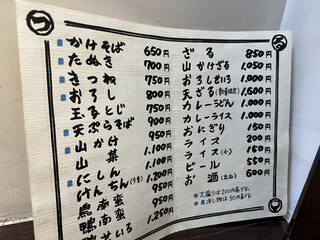 かけそば 650円
たぬき 700円
きつね 750円
おろし 800円
玉子とじ
天ぷらそば 900円
山かけ 950円
山菜
にしん 1.100円
けんちん(冬季) 1.200円
南蛮 950円
南蛮 950円
せいろ 1.250円
ざる 850円
山かけざる 1.050円
おろしせいろ 1.000円
天ざる(数量限定) 1.600円
カレーうどん 1.000円
カレーライス 1.000円
おにぎり 150円
ライス 200円
ライス(小) 150円
ビール 550円
お酒 600円
大盛りは200円増です。
冷し物は50円増です。